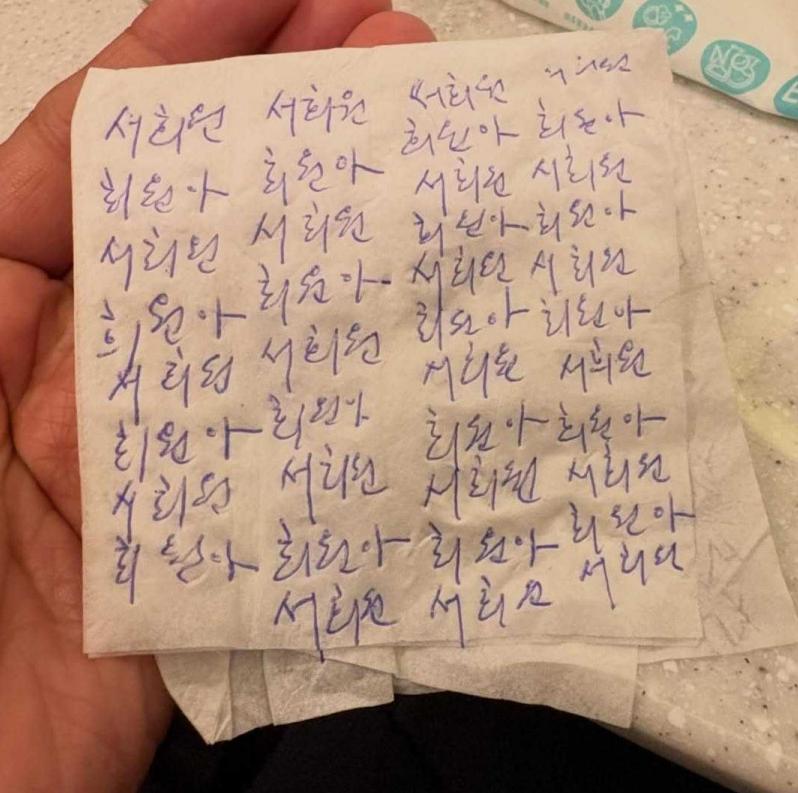 서희원
희원아
서희원
희원아
서희원
희원아
서희원
희원아
서희원
희원아
서희원
희원아
서희원
희원아
서희원
희원아
서희원
서희원
희원아
서희원
희원아
서희원
희원아
서희원
희원아
서희원
희원아
서희원
희원아
서희원
희원아
서희원
희원아
서희원
희원아
서희원
희원아
서희원